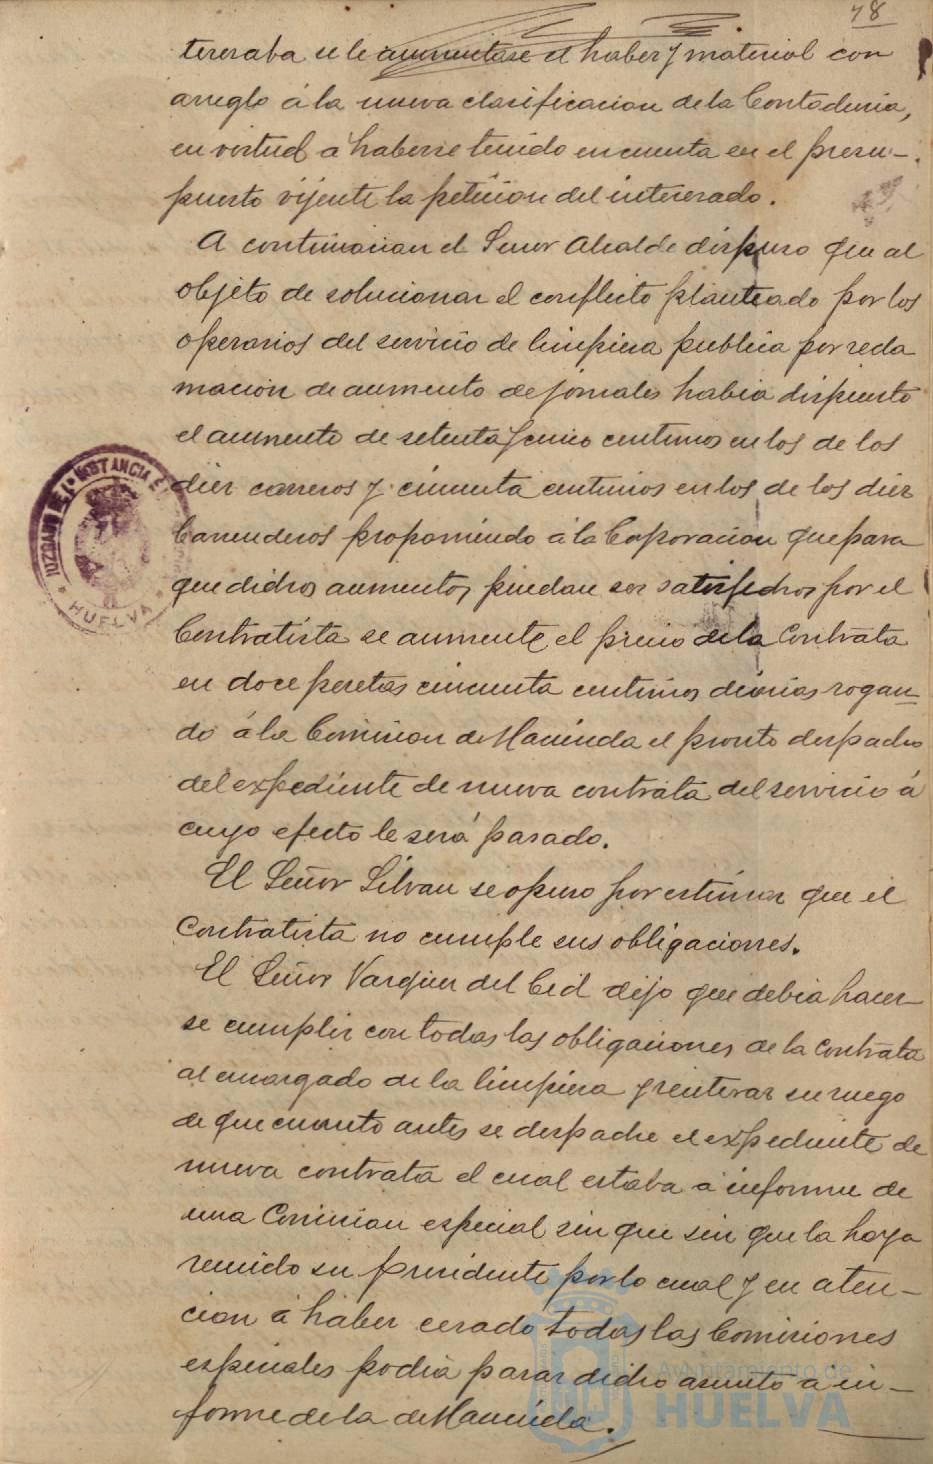 78
teresaba se le aumentase el haber y material con
arreglo á la nueva clasificacion de la Contaduria,
en virtud á haberse tenido en cuenta en el presu-
puesto vijente la peticion del interesado.
A continuacion el Señor Alcalde dispuso que al
objeto de solucionar el conflicto planteado por los
operarios del servicio de limpieza publica por recla
macion de aumento de jornales habia dispuesto
el aumento de setenta y cinco centimos en los de los
diez carreros y cincuenta centimos en los de los diez
barrenderos proponiendo á la Corporacion que para
que dichos aumentos puedan ser satisfechos por el
Contratista se aumente el precio de la Contrata
en doce pesetas cincuenta centimos diarias rogan-
do á la Comision de Hacienda el pronto despacho
del expediente de nueva contrata del servicio á
cuyo efecto le será pasado.
El Señor Silvan se opuso por estimar que el
Contratista no cumple sus obligaciones.
El Señor Varquez del Cid dijo que debia hacer
se cumplir con todas las obligaciones de la contrata
al encargado de la limpieza y reiterar su ruego
de que cuanto antes se despache el expediente de
nueva contrata el cual estaba á informe de
una Comision especial sin que sin que la haya
reunido su Presidente por lo cual y en aten-
cion á haber cesado todas las Comisiones
especiales podia pasar dicho asunto a in-
forme de la de Hacienda.
JUZGADO DE 1ª INSTANCIA
HUELVA
Ayuntamiento de
HUELVA